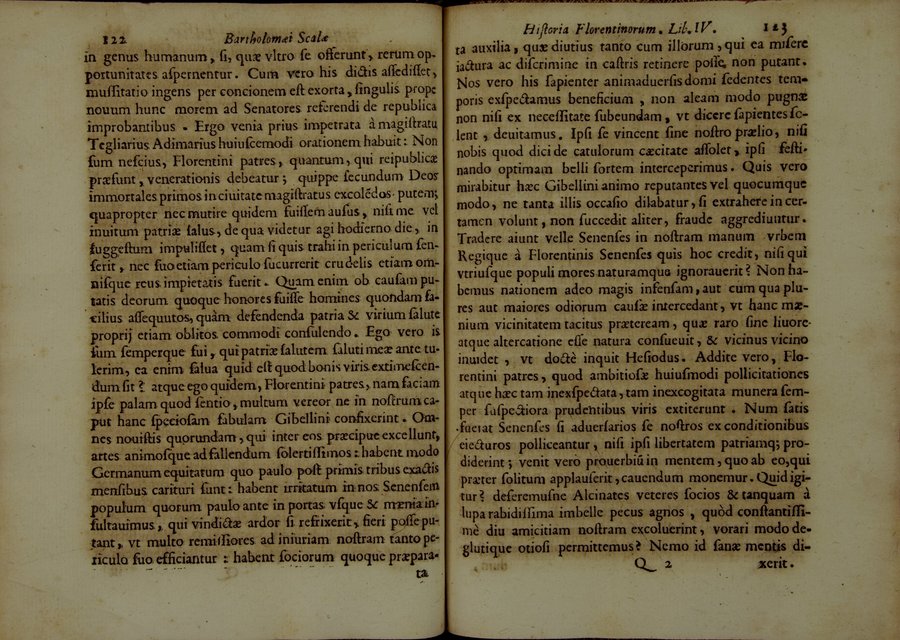 122 Bartholomæi Scalæ
in genus humanum, ſi, quæ vltro ſe offerunt, rerum op-
portunitates aſpernentur. Cum vero his dictis aſſediſſet,
muſſitatio ingens per concionem eſt exorta, ſingulis prope
nouum hunc morem ad Senatores referendi de republica
improbantibus. Ergo venia prius impetrata à magiſtratu
Tegliarius Adimarius huiuſcemodi orationem habuit: Non
ſum neſcius, Florentini patres, quantum, qui reipublicæ
præſunt, venerationis debeatur; quippe ſecundum Deos
immortales primos in ciuitate magiſtratus excolēdos putem;
quapropter nec mutire quidem fuiſſem auſus, niſi me vel
inuitum patriæ ſalus, de qua videtur agi hodierno die, in
ſuggeſtum impuliſſet, quam ſi quis trahi in periculum ſen-
ſerit, nec ſuo etiam periculo ſucurrerit crudelis etiam om-
niſque reus impietatis fuerit. Quam enim ob cauſam pu-
tatis deorum quoque honores fuiſſe homines quondam fa-
cilius aſſequutos, quàm defendenda patria & virium ſalute
proprij etiam oblitos commodi conſulendo. Ego vero is
ſum ſemperque fui, qui patriæ ſalutem ſaluti meæ ante tu-
lerim, ea enim ſalua quid eſt quod bonis viris extimeſcen-
dum ſit? atque ego quidem, Florentini patres, nam faciam
ipſe palam quod ſentio, multum vereor ne in noſtrum ca-
put hanc ſpecioſam fabulam Gibellini confixerint. Om-
nes nouiſtis quorundam, qui inter eos præcipue excellunt,
artes animoſque ad fallendum ſolertiſſimos: habent modo
Germanum equitatum quo paulo poſt primis tribus exactis
menſibus carituri ſunt: habent irritatum in nos Senenſem
populum quorum paulo ante in portas vſque & mænia in-
ſultauimus, qui vindictæ ardor ſi refrixerit, fieri poſſe pu-
tant, vt multo remiſſiores ad iniuriam noſtram tanto pe-
riculo ſuo efficiantur: habent ſociorum quoque præpara-
ta
Hiſtoria Florentinorum. Lib. IV. 123
ta auxilia, quæ diutius tanto cum illorum, qui ea miſere
iactura ac diſcrimine in caſtris retinere poſſe, non putant.
Nos vero his ſapienter animaduerſis domi ſedentes tem-
poris exſpectamus beneficium, non aleam modo pugnæ
non niſi ex neceſſitate ſubeundam, vt dicere ſapientes ſo-
lent, deuitamus. Ipſi ſe vincent ſine noſtro prælio, niſi
nobis quod dici de catulorum cæcitate aſſolet, ipſi feſti-
nando optimam belli ſortem interceperimus. Quis vero
mirabitur hæc Gibellini animo reputantes vel quocumque
modo, ne tanta illis occaſio dilabatur, ſi extrahere in cer-
tamen volunt, non ſuccedit aliter, fraude aggrediuntur.
Tradere aiunt velle Senenſes in noſtram manum vrbem
Regique à Florentinis Senenſes quis hoc credit, niſi qui
vtriuſque populi mores naturamque ignorauerit? Non ha-
bemus nationem adeo magis infenſam, aut cum qua plu-
res aut maiores odiorum cauſæ intercedant, vt hanc mæ-
nium vicinitatem tacitus præteream, quæ raro ſine liuore
atque altercatione eſſe natura conſueuit, & vicinus vicino
inuidet, vt doctè inquit Heſiodus. Addite vero, Flo-
rentini patres, quod ambitioſæ huiuſmodi pollicitationes
atque hæc tam inexſpectata, tam inexcogitata munera ſem-
per ſuſpectiora prudentibus viris extiterunt. Num ſatis
fuerat Senenſes ſi aduerſarios ſe noſtros ex conditionibus
eiecturos polliceantur, niſi ipſi libertatem patriamq; pro-
diderint; venit vero prouerbiũ in mentem, quo ab eo, qui
præter ſolitum applauſerit, cauendum monemur. Quid igi-
tur? deferemuſne Alcinates veteres ſocios & tanquam à
lupa rabidiſſima imbelle pecus agnos, quòd conſtantiſſi-
mè diu amicitiam noſtram excoluerint, vorari modo de-
glutique otioſi permittemus? Nemo id ſanæ mentis di-
Q 2 xerit.